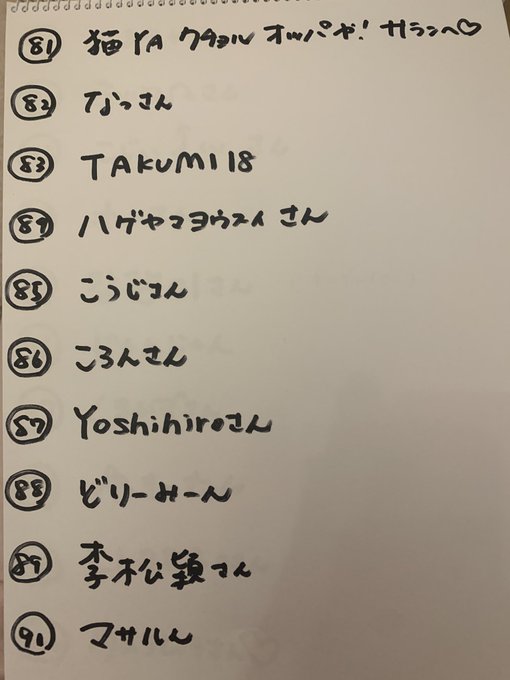 81 猫YA クチョル オッパヤ! サランヘ♡
82 なっさん
83 TAKUMI18
84 ハゲヤマヨウスイさん
85 こうじさん
86 ころんさん
87 Yoshihiroさん
88 どりーみーん
89 李松穎さん
91 マサルん